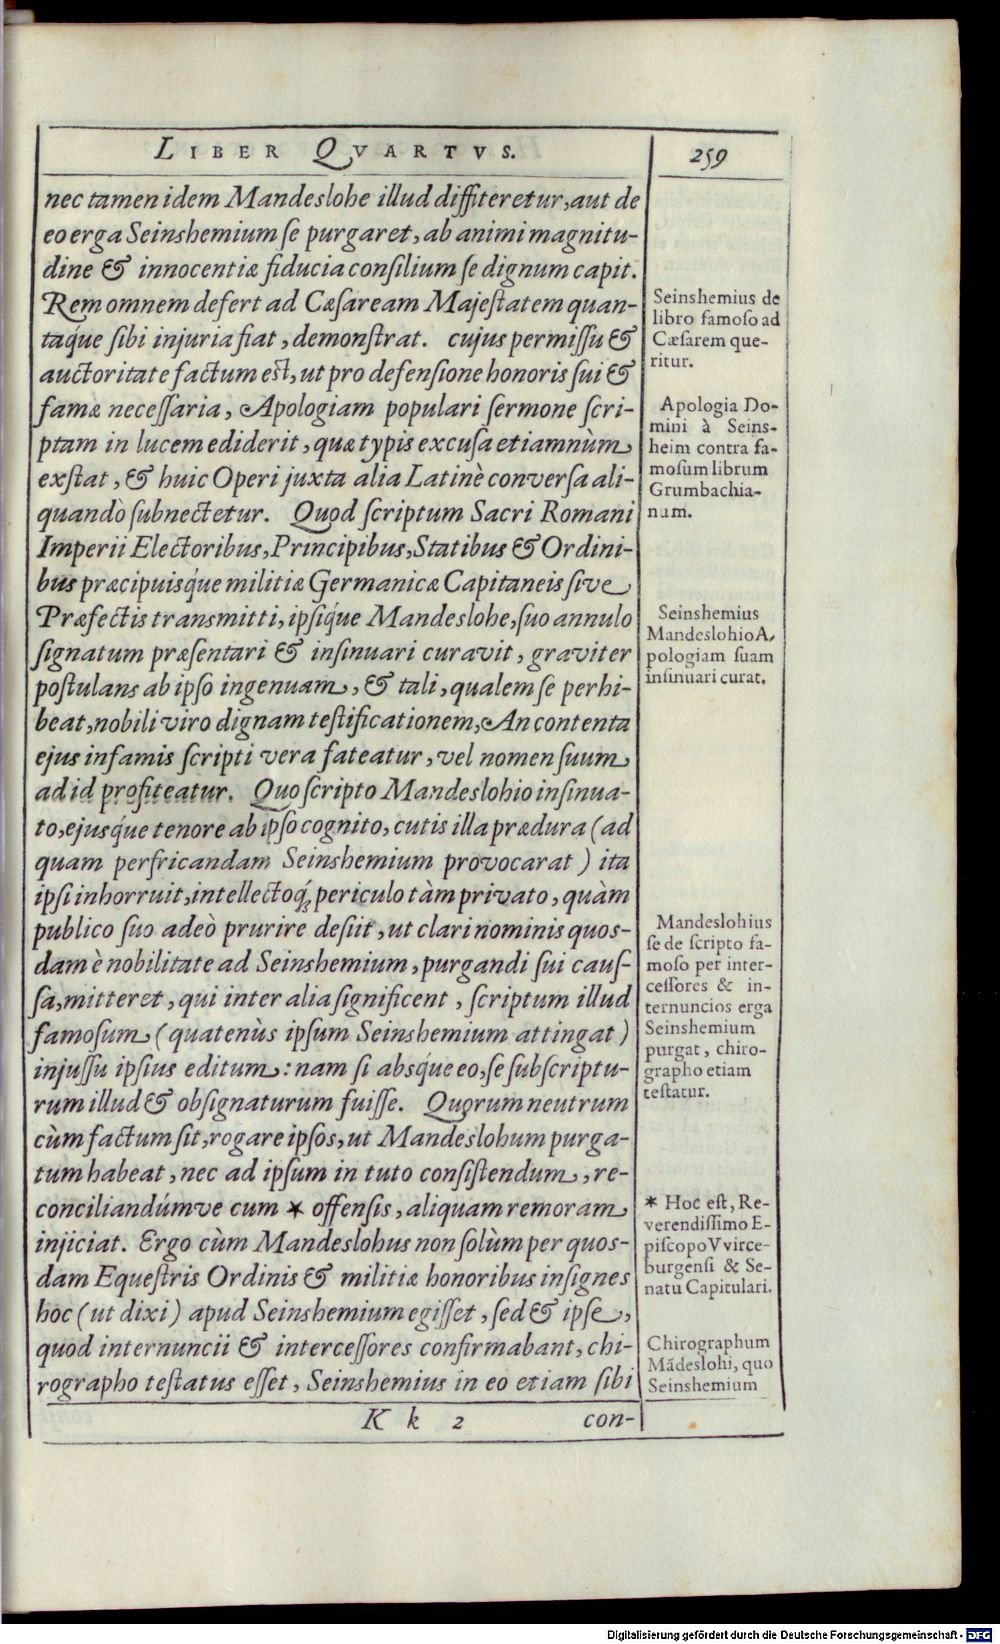 LIBER QVARTVS.
259
nec tamen idem Mandeslohe illud diffiteretur, aut de
eo erga Seinshemium se purgaret, ab animi magnitu-
dine & innocentiæ fiducia consilium se dignum capit.
Rem omnem defert ad Cæsaream Majestatem quan-
taq́ue sibi injuria fiat, demonstrat. cujus permissu &
auctoritate factum est, ut pro defensione honoris sui &
famæ necessaria, Apologiam populari sermone scri-
ptam in lucem ediderit, quæ typis excusa etiamnùm
exstat, & huic Operi juxta alia Latinè conversa ali-
quandò subnectetur. Quod scriptum Sacri Romani
Imperii Electoribus, Principibus, Statibus & Ordini-
bus præcipuisq́ue militiæ Germanicæ Capitaneis sive
Præfectis transmitti, ipsiq́ue Mandeslohe, suo annulo
signatum præsentari & insinuari curavit, graviter
postulans ab ipso ingenuam, & tali, qualem se perhi-
beat, nobili viro dignam testificationem, An contenta
ejus infamis scripti vera fateatur, vel nomen suum
ad id profiteatur. Quo scripto Mandeslohio insinua-
to, ejusq́ue tenore ab ipso cognito, cutis illa prædura (ad
quam perfricandam Seinshemium provocarat) ita
ipsi inhorruit, intellectoq́; periculo tàm privato, quàm
publico suo adeò prurire desiit, ut clari nominis quos-
dam è nobilitate ad Seinshemium, purgandi sui caus-
sa, mitteret, qui inter alia significent, scriptum illud
famosum (quatenùs ipsum Seinshemium attingat)
injussu ipsius editum: nam si absq́ue eo, se subscriptu-
rum illud & obsignaturum fuisse. Quorum neutrum
cùm factum sit, rogare ipsos, ut Mandeslohum purga-
tum habeat, nec ad ipsum in tuto consistendum, re-
conciliandúmve cum * offensis, aliquam remoram
injiciat. Ergo cùm Mandeslohus non solùm per quos-
dam Equestris Ordinis & militiæ honoribus insignes
hoc (ut dixi) apud Seinshemium egisset, sed & ipse,
quod internuncii & intercessores confirmabant, chi-
rographo testatus esset, Seinshemius in eo etiam sibi
Kk 2
con-
Seinshemius de
libro famoso ad
Cæsarem que-
ritur.
Apologia Do-
mini à Seins-
heim contra fa-
mosum librum
Grumbachia-
num.
Seinshemius
Mandeslohio A-
pologiam suam
insinuari curat.
Mandeslohius
se de scripto fa-
moso per inter-
cessores & in-
ternuncios erga
Seinshemium
purgat, chiro-
grapho etiam
testatur.
* Hoc est, Re-
verendissimo E-
piscopo VVirce-
burgensi & Se-
natu Capitulari.
Chirographum
Mãdeslohi, quo
Seinshemium
Digitalisierung gefördert durch die Deutsche Forschungsgemeinschaft - DFG